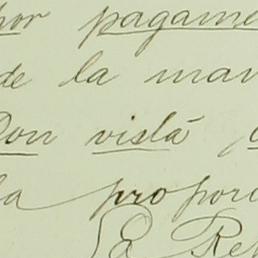 por pagame
de la man
Don vistá
la propor
E Re